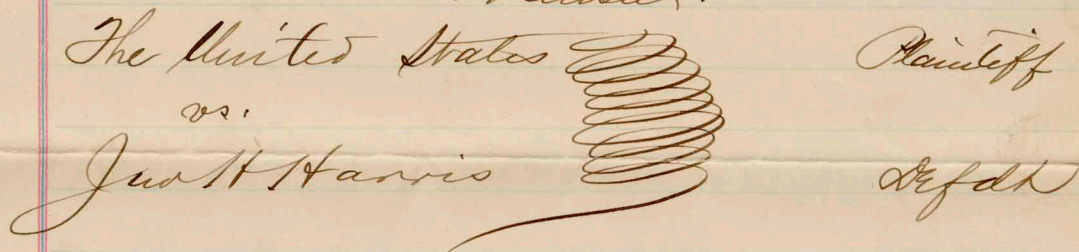 The United States Plaintiff
vs.
Jno H Harris Defdt